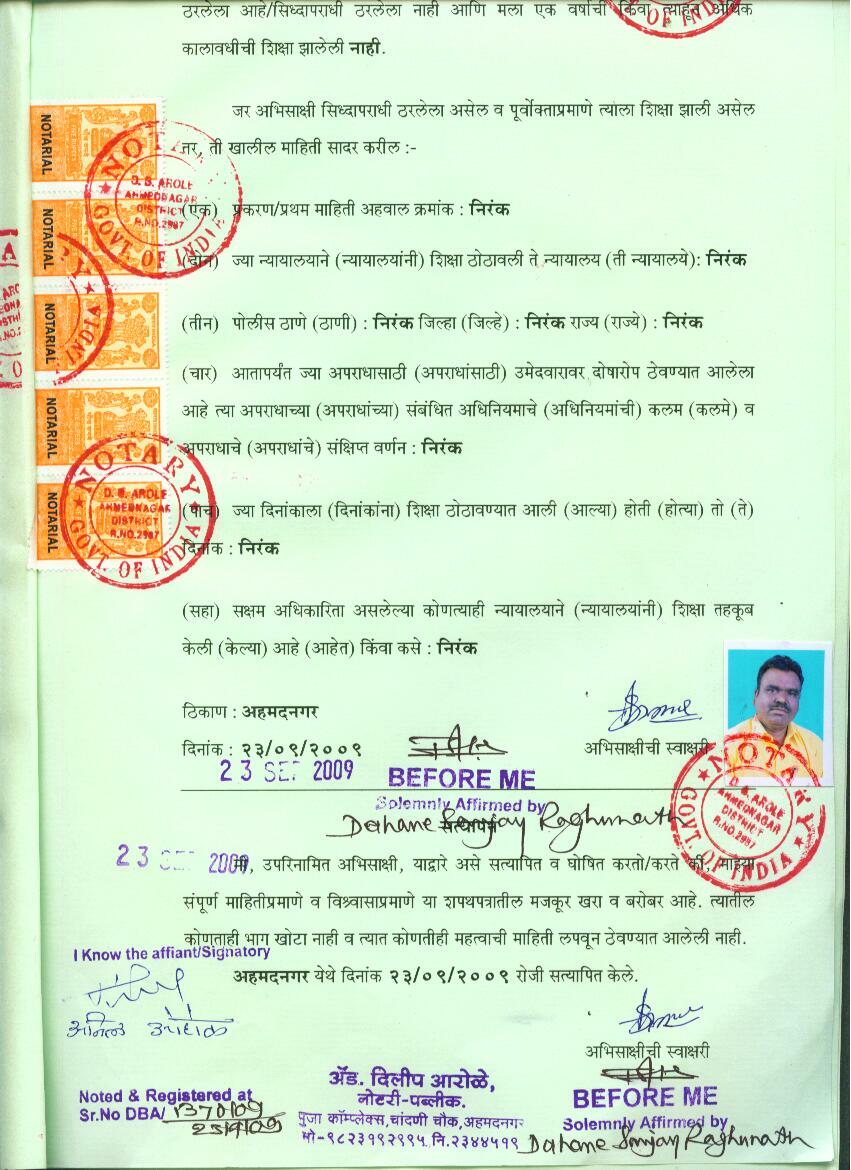 ठरलेला आहे/सिध्दापराधी ठरलेला नाही आणि मला एक वर्षाची किंवा त्याहून अधिक
कालावधीची शिक्षा झालेली नाही.
OF INDIA
जर अभिसाक्षी सिध्दापराधी ठरलेला असेल व पूर्वोक्ताप्रमाणे त्याला शिक्षा झाली असेल
तर, ती खालील माहिती सादर करील :-
NOTARIAL
NOTARIAL
NOTARIAL
NOTARIAL
NOTARIAL
NOTARY
D. S. AROLE
AHMEDNAGAR
DISTRICT
R.NO.2987
GOVT. OF INDIA
(एक) प्रकरण/प्रथम माहिती अहवाल क्रमांक : निरंक
(दोन) ज्या न्यायालयाने (न्यायालयांनी) शिक्षा ठोठावली ते न्यायालय (ती न्यायालये): निरंक
INDIA
(तीन) पोलीस ठाणे (ठाणी) : निरंक जिल्हा (जिल्हे) : निरंक राज्य (राज्ये) : निरंक
(चार) आतापर्यंत ज्या अपराधासाठी (अपराधांसाठी) उमेदवारावर दोषारोप ठेवण्यात आलेला
आहे त्या अपराधाच्या (अपराधांच्या) संबंधित अधिनियमाचे (अधिनियमांची) कलम (कलमे) व
अपराधाचे (अपराधांचे) संक्षिप्त वर्णन : निरंक
NOTARY
D. S. AROLE
AHMEDNAGAR
DISTRICT
R.NO.2987
GOVT. OF INDIA
(पाच) ज्या दिनांकाला (दिनांकांना) शिक्षा ठोठावण्यात आली (आल्या) होती (होत्या) तो (ते)
दिनांक : निरंक
(सहा) सक्षम अधिकारिता असलेल्या कोणत्याही न्यायालयाने (न्यायालयांनी) शिक्षा तहकूब
केली (केल्या) आहे (आहेत) किंवा कसे : निरंक
ठिकाण : अहमदनगर
दिनांक : २३/०९/२००९
अभिसाक्षीची स्वाक्षरी
23 SEP 2009
BEFORE ME
Solemnly Affirmed by
Dahane Sanjay Raghunath
सत्यापन
NOTARY
D. S. AROLE
AHMEDNAGAR
DISTRICT
R.NO.2987
GOVT. OF INDIA
23 SEP 2009
मी, उपरिनामित अभिसाक्षी, याद्वारे असे सत्यापित व घोषित करतो/करते की, माझ्या
संपूर्ण माहितीप्रमाणे व विश्र्वासाप्रमाणे या शपथपत्रातील मजकूर खरा व बरोबर आहे. त्यातील
कोणताही भाग खोटा नाही व त्यात कोणतीही महत्वाची माहिती लपवून ठेवण्यात आलेली नाही.
I Know the affiant/Signatory
अहमदनगर येथे दिनांक २३/०९/२००९ रोजी सत्यापित केले.
अभिसाक्षीची स्वाक्षरी
Noted & Registered at
Sr.No DBA/ 1370/09
23/9/09
ॲड. दिलीप आरोळे,
नोटरी-पब्लीक.
पुजा कॉम्प्लेक्स,चांदणी चौक,अहमदनगर
मो-९८२३१९२९९५,नि.२३४४५१९
BEFORE ME
Solemnly Affirmed by
Dahane Sanjay Raghunath